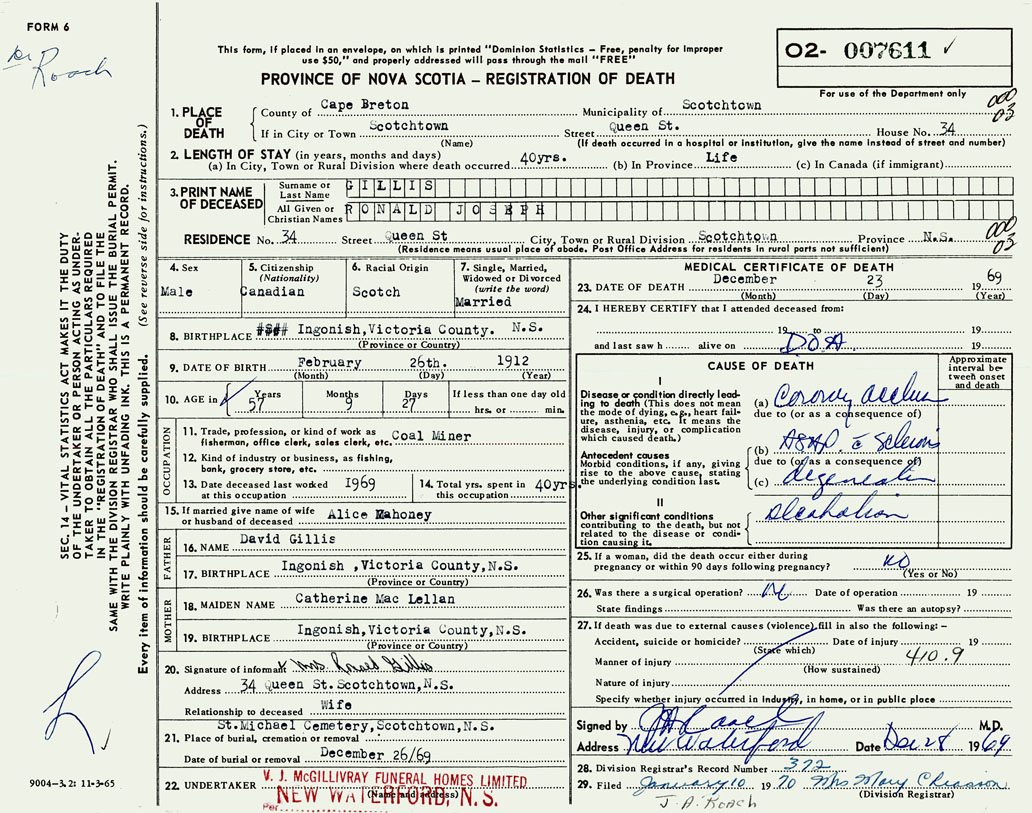 FORM 6
Dr Roach
This form, if placed in an envelope, on which is printed "Dominion Statistics – Free, penalty for improper
use $50," and properly addressed will pass through the mail "FREE"
PROVINCE OF NOVA SCOTIA – REGISTRATION OF DEATH
O2- 007611 ✓
For use of the Department only
000
03
1. PLACE OF DEATH
County of Cape Breton Municipality of Scotchtown
If in City or Town Scotchtown Street Queen St. House No. 34
(Name) (If death occurred in a hospital or institution, give the name instead of street and number)
2. LENGTH OF STAY (in years, months and days)
(a) In City, Town or Rural Division where death occurred 40yrs. (b) In Province Life (c) In Canada (if immigrant)
3. PRINT NAME OF DECEASED
Surname or Last Name GILLIS
All Given or Christian Names RONALD JOSEPH
RESIDENCE No. 34 Street Queen St City, Town or Rural Division Scotchtown Province N.S.
(Residence means usual place of abode. Post Office Address for residents in rural parts not sufficient)
000
03
4. Sex
Male
5. Citizenship
(Nationality)
Canadian
6. Racial Origin
Scotch
7. Single, Married,
Widowed or Divorced
(write the word)
Married
8. BIRTHPLACE #### Ingonish,Victoria County. N.S.
(Province or Country)
9. DATE OF BIRTH February 26th. 1912
(Month) (Day) (Year)
10. AGE in ✓ Years Months Days If less than one day old
57 9 27 hrs. or min.
OCCUPATION
11. Trade, profession, or kind of work as
fisherman, office clerk, sales clerk, etc. Coal Miner
12. Kind of industry or business, as fishing,
bank, grocery store, etc.
13. Date deceased last worked
at this occupation 1969
14. Total yrs. spent in
this occupation 40yrs.
15. If married give name of wife
or husband of deceased Alice Mahoney
FATHER
16. NAME David Gillis
17. BIRTHPLACE Ingonish ,Victoria County,N.S.
(Province or Country)
MOTHER
18. MAIDEN NAME Catherine Mac Lellan
19. BIRTHPLACE Ingonish,Victoria County,N.S.
(Province or Country)
20. Signature of informant x Mrs. Ronald Gillis
Address 34 Queen St.Scotchtown,N.S.
Relationship to deceased Wife
St.Michael Cemetery,Scotchtown,N.S.
21. Place of burial, cremation or removal
Date of burial or removal December 26/69
22. UNDERTAKER V. J. McGILLIVRAY FUNERAL HOMES LIMITED
(Name and address)
NEW WATERFORD, N. S.
Per
MEDICAL CERTIFICATE OF DEATH
23. DATE OF DEATH December 23 1969
(Month) (Day) (Year)
24. I HEREBY CERTIFY that I attended deceased from:
19 to 19
and last saw h alive on DOA 19
CAUSE OF DEATH
Approximate
interval be-
tween onset
and death
I
Disease or condition directly lead-
ing to death (This does not mean
the mode of dying, e.g., heart fail-
ure, asthenia, etc. It means the
disease, injury, or complication
which caused death.)
(a)
due to (or as a consequence of)
Antecedent causes
Morbid conditions, if any, giving
rise to the above cause, stating
the underlying condition last.
(b)
due to (or as a consequence of)
(c)
II
Other significant conditions
contributing to the death, but not
related to the disease or condi-
tion causing it.
Alcoholism
25. If a woman, did the death occur either during
pregnancy or within 90 days following pregnancy? NO
(Yes or No)
26. Was there a surgical operation? Date of operation 19
State findings Was there an autopsy?
27. If death was due to external causes (violence), fill in also the following: –
Accident, suicide or homicide? Date of injury 19
(State which)
Manner of injury 410.9
(How sustained)
Nature of injury
Specify whether injury occurred in industry, in home, or in public place
Signed by M.D.
Address New Waterford Date Dec 28 1969
28. Division Registrar's Record Number 372
29. Filed January 10 1970 Mrs Mary Chiasson
(Division Registrar)
J. A. ROACH
SEC. 14 – VITAL STATISTICS ACT MAKES IT THE DUTY
OF THE UNDERTAKER OR PERSON ACTING AS UNDER-
TAKER TO OBTAIN ALL THE PARTICULARS REQUIRED
IN THE "REGISTRATION OF DEATH" AND TO FILE THE
SAME WITH THE DIVISION REGISTRAR WHO SHALL ISSUE THE BURIAL PERMIT.
WRITE PLAINLY WITH UNFADING INK. THIS IS A PERMANENT RECORD.
Every item of information should be carefully supplied. (See reverse side for instructions.)
9004–3.2: 11-3-65